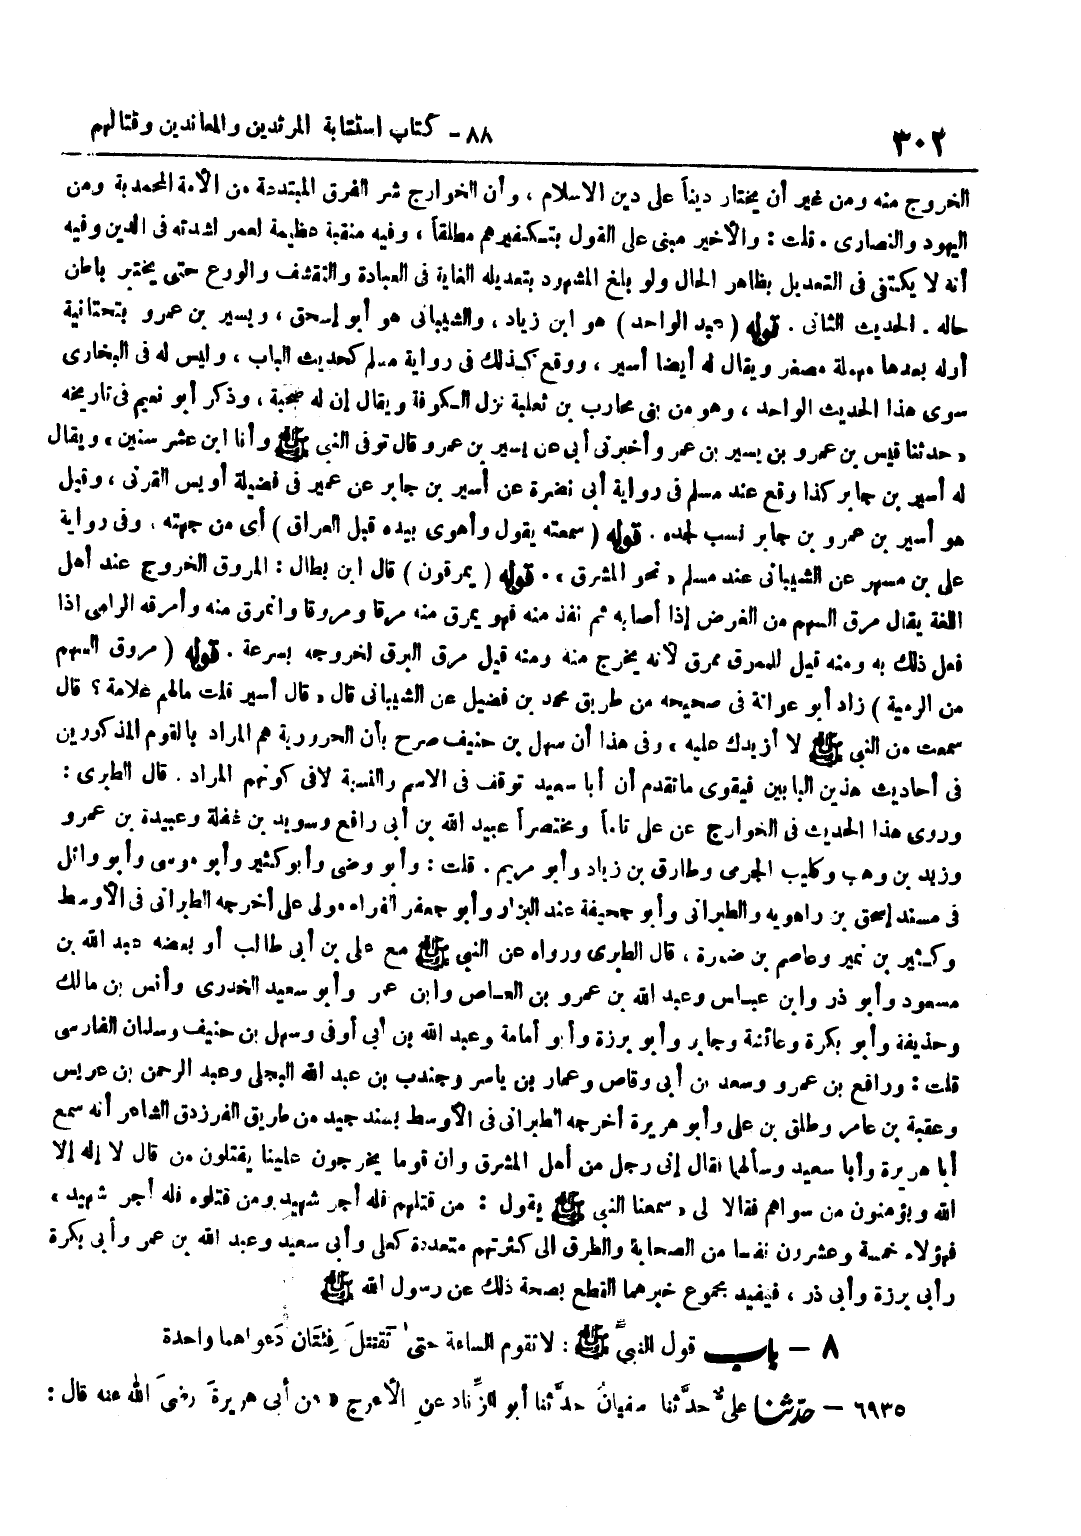 ٣٠٢ ٨٨ - كتاب استتابة المرتدين والمعاندين وقتالهم
الخروج منه ومن غير أن يختار ديناً على دين الاسلام ، وأن الخوارج شر الفرق المبتدعة من الأمة المحمدية ومن
اليهود والنصارى . قلت : والأخير مبنى على القول بتكفيرهم مطلقاً ، وفيه منقبة عظيمة لعمر لشدته فى الدين وفيه
أنه لا يكتفى فى التعديل بظاهر الحال ولو بلغ المشهود بتعديله الغاية فى العبادة والتقشف والورع حتى يختبر باطن
حاله . الحديث الثانى . قوله ( عبد الواحد ) هو ابن زياد ، والشيبانى هو أبو إسحق ، ويسير بن عمرو بتحتانية
أوله بعدها مهملة مصغر ويقال له أيضا أسير ، ووقع كذلك فى رواية مسلم كحديث الباب ، وليس له فى البخارى
سوى هذا الحديث الواحد ، وهو من بنى محارب بن ثعلبة نزل الكوفة ويقال إن له صحبة ، وذكر أبو نعيم فى تاريخه
« حدثنا قيس بن عمرو بن يسير بن عمر وأخبرنى أبى عن يسير بن عمرو قال توفى النبى ﷺ وأنا ابن عشر سنين » ويقال
له أسير بن جابر كذا وقع عند مسلم فى رواية أبى نضرة عن أسير بن جابر عن عمير فى فضيلة أويس القرنى ، وقيل
هو أسير بن عمرو بن جابر نسب لجده . قوله ( سمعته يقول وأهوى بيده قبل العراق ) أى من جهته ، وفى رواية
على بن مسهر عن الشيبانى عند مسلم « نحو المشرق » . قوله ( يمرقون ) قال ابن بطال : المروق الخروج عند أهل
اللغة يقال مرق السهم من الغرض إذا أصابه ثم نفذ منه فهو يمرق منه مرقا ومروقا وانمرق منه وأمرقه الرامى اذا
فعل ذلك به ومنه قيل للمرق مرق لأنه يخرج منه ومنه قيل مرق البرق لخروجه بسرعة . قوله ( مروق السهم
من الرمية ) زاد أبو عوانة فى صحيحه من طريق محمد بن فضيل عن الشيبانى قال « قال أسير قلت مالهم علامة ؟ قال
سمعت من النبى ﷺ لا أزيدك عليه » وفى هذا أن سهل بن حنيف صرح بأن الحرورية هم المراد بالقوم المذكورين
فى أحاديث هذين البابين فيقوى ماتقدم أن أبا سعيد توقف فى الاسم والنسبة لافى كونهم المراد . قال الطبرى :
وروى هذا الحديث فى الخوارج عن على تاماً ومختصراً عبيد الله بن أبى رافع وسويد بن غفلة وعبيدة بن عمرو
وزيد بن وهب وكليب الجرمى وطارق بن زياد وأبو مريم . قلت : وأبو وضى وأبو كثير وأبو موسى وأبو وائل
فى مسند إسحق بن راهويه والطبرانى وأبو جحيفة عند البزار وأبو جعفر الفراء مولى على أخرجه الطبرانى فى الأوسط
وكثير بن نمير وعاصم بن ضمرة ، قال الطبرى ورواه عن النبى ﷺ مع على بن أبى طالب أو بعضه عبد الله بن
مسعود وأبو ذر وابن عباس وعبد الله بن عمرو بن العاص وابن عمر وأبو سعيد الخدرى وأنس بن مالك
وحذيفة وأبو بكرة وعائشة وجابر وأبو برزة وأبو أمامة وعبد الله بن أبى أوفى وسهل بن حنيف وسلمان الفارسى
قلت : ورافع بن عمرو وسعد بن أبى وقاص وعمار بن ياسر وجندب بن عبد الله البجلى وعبد الرحمن بن عريس
وعقبة بن عامر وطلق بن على وأبو هريرة أخرجه الطبرانى فى الأوسط بسند جيد من طريق الفرزدق الشاعر أنه سمع
أبا هريرة وأبا سعيد وسألهما فقال إنى رجل من أهل المشرق وان قوما يخرجون علينا يقتلون من قال لا إله إلا
الله ويؤمنون من سواهم فقالا لى « سمعنا النبى ﷺ يقول : من قتلهم فله أجر شهيد ومن قتلوه فله أجر شهيد »
فهؤلاء خمسة وعشرون نفسا من الصحابة والطرق الى كثرتهم متعددة كعلى وأبى سعيد وعبد الله بن عمر وأبى بكرة
وأبى برزة وأبى ذر ، فيفيد مجموع خبرهما القطع بصحة ذلك عن رسول الله ﷺ
٨ - باب قول النبىِّ ﷺ : لا تقوم الساعة حتى تَقتتلَ فِئتان دَعواهما واحدة
٦٩٣٥ - حدّثنا علىٌّ حدَّثنا سفيانُ حدَّثنا أبو الزِّناد عن الأعرج « عن أبى هريرةَ رضىَ الله عنه قال :